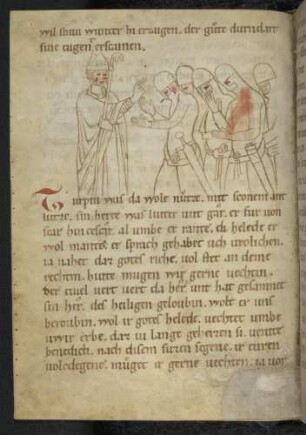 vil snia wnter in erougen. der gůte durndart
sine tugent erscainen.
Turpin was da wole nůtze. mit sconem ant
lutze. sin herce was luter unt gar. er fůr von
scar hin ce scar. al umbe er rante. di helede er
wol mante. er sprach gehabet uch urolichen.
ia nahet daz gotes riche. vol stet an deine
rechten. hiute mugen wir gerne uechten.
der tiuel uert da her. unt hat gesamnet
sin her. des heiligen gelouben. wolt er uns
berouben. wol ir gotes helede. uechtet umbe
uwir erbe. daz iu lange geheizzen si. uenite
benedicti. nach disem sůzen segene. ir turen
uolcdegene. muget ir gerne uechten. ia uor